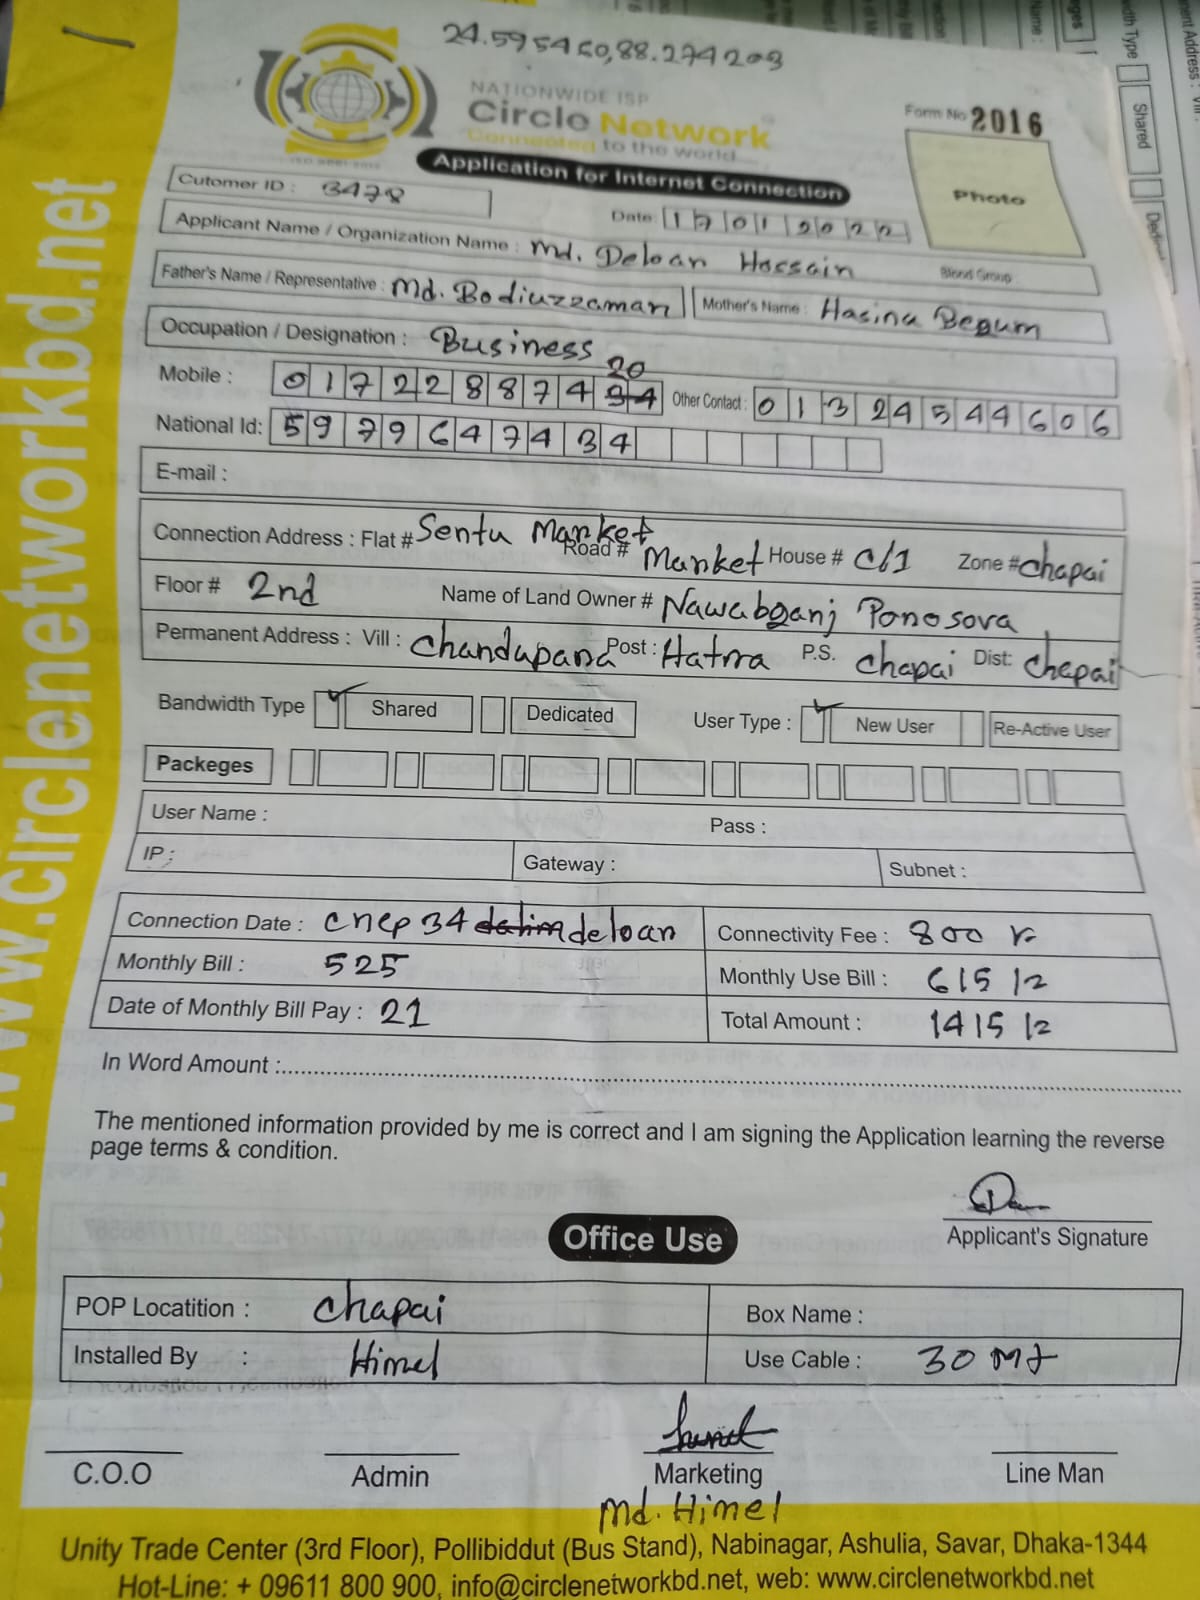 24.595460,88.274203
NATIONWIDE ISP
Circle Network
Connected to the world...
Form No 2016
Application for Internet Connection
Photo
Cutomer ID : 3478
Date: 17012022
Applicant Name / Organization Name : Md. Deloar Hossain
Blood Group :
Father's Name / Representative : Md. Bodiuzzaman Mother's Name : Hasina Begum
Occupation / Designation : Business
20
Mobile : 01722887434 Other Contact : 01324544606
National Id: 5979647434
E-mail :
Connection Address : Flat # Sentu Market Road # Market House # C/1 Zone # Chapai
Floor # 2nd Name of Land Owner # Nawabganj Ponosova
Permanent Address : Vill : Chandupara Post : Hatrra P.S. Chapai Dist: Chapai
Bandwidth Type Shared Dedicated User Type : New User Re-Active User
Packeges
User Name : Pass :
IP : Gateway : Subnet :
Connection Date : cnep34 dalim deloar Connectivity Fee : 800 /-
Monthly Bill : 525 Monthly Use Bill : 615 /-
Date of Monthly Bill Pay : 21 Total Amount : 1415 /-
In Word Amount :
The mentioned information provided by me is correct and I am signing the Application learning the reverse
page terms & condition.
Applicant's Signature
Office Use
POP Locatition : Chapai Box Name :
Installed By : Himel Use Cable : 30 Mt
C.O.O Admin Marketing Line Man
Md. Himel
Unity Trade Center (3rd Floor), Pollibiddut (Bus Stand), Nabinagar, Ashulia, Savar, Dhaka-1344
Hot-Line: + 09611 800 900, info@circlenetworkbd.net, web: www.circlenetworkbd.net
www.circlenetworkbd.net